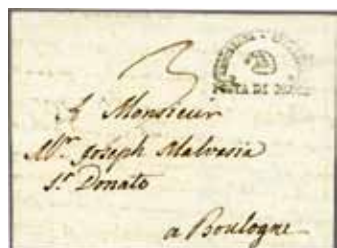 3
POSTA DI
A Monsieur
Mr. Joseph Malvasia
St. Donato
a Boulogne